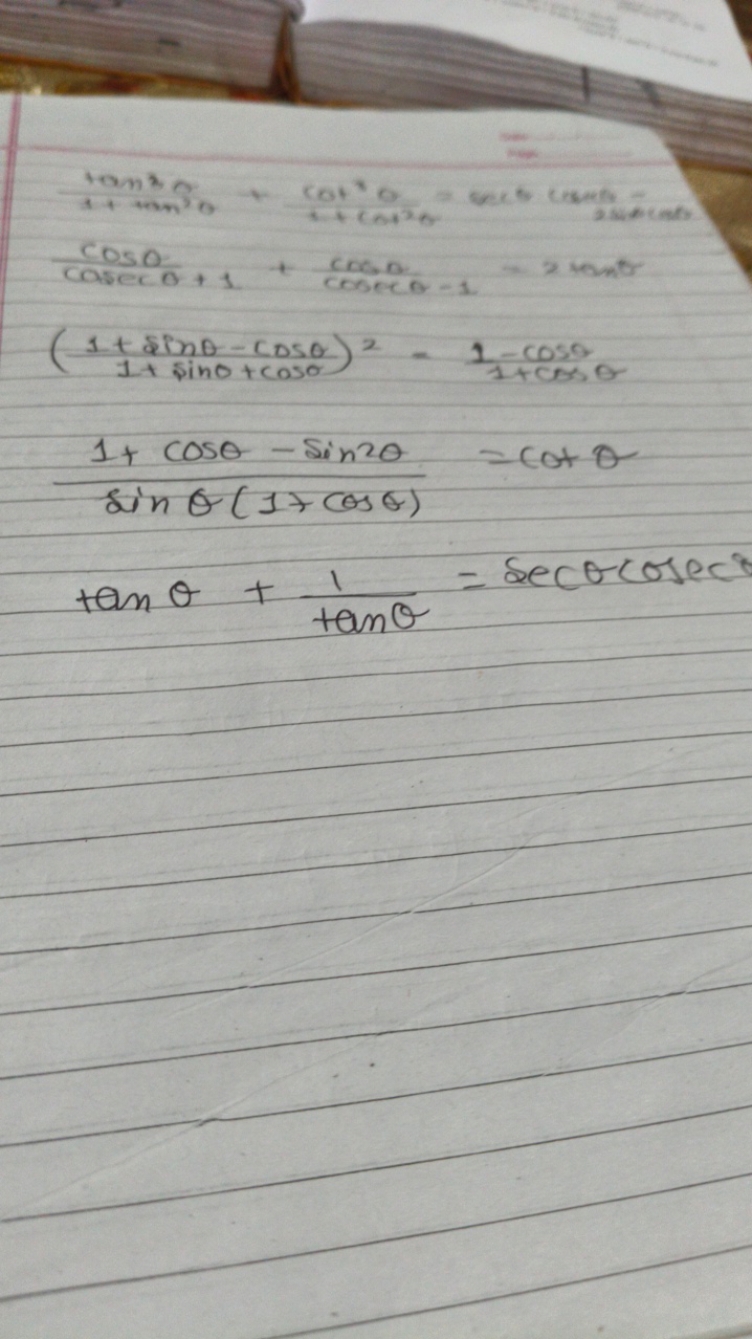 tan³θ / 1 + tan²θ + cot³θ / 1 + cot²θ = secθ cosecθ - 2sinθcosθ
cosθ / cosecθ + 1 + cosθ / cosecθ - 1 = 2 tanθ
(1 + sinθ - cosθ / 1 + sinθ + cosθ)² = 1 - cosθ / 1 + cosθ
1 + cosθ - sin2θ / sin θ (1 + cosθ) = cot θ
tan θ + 1 / tanθ = secθcosecθ